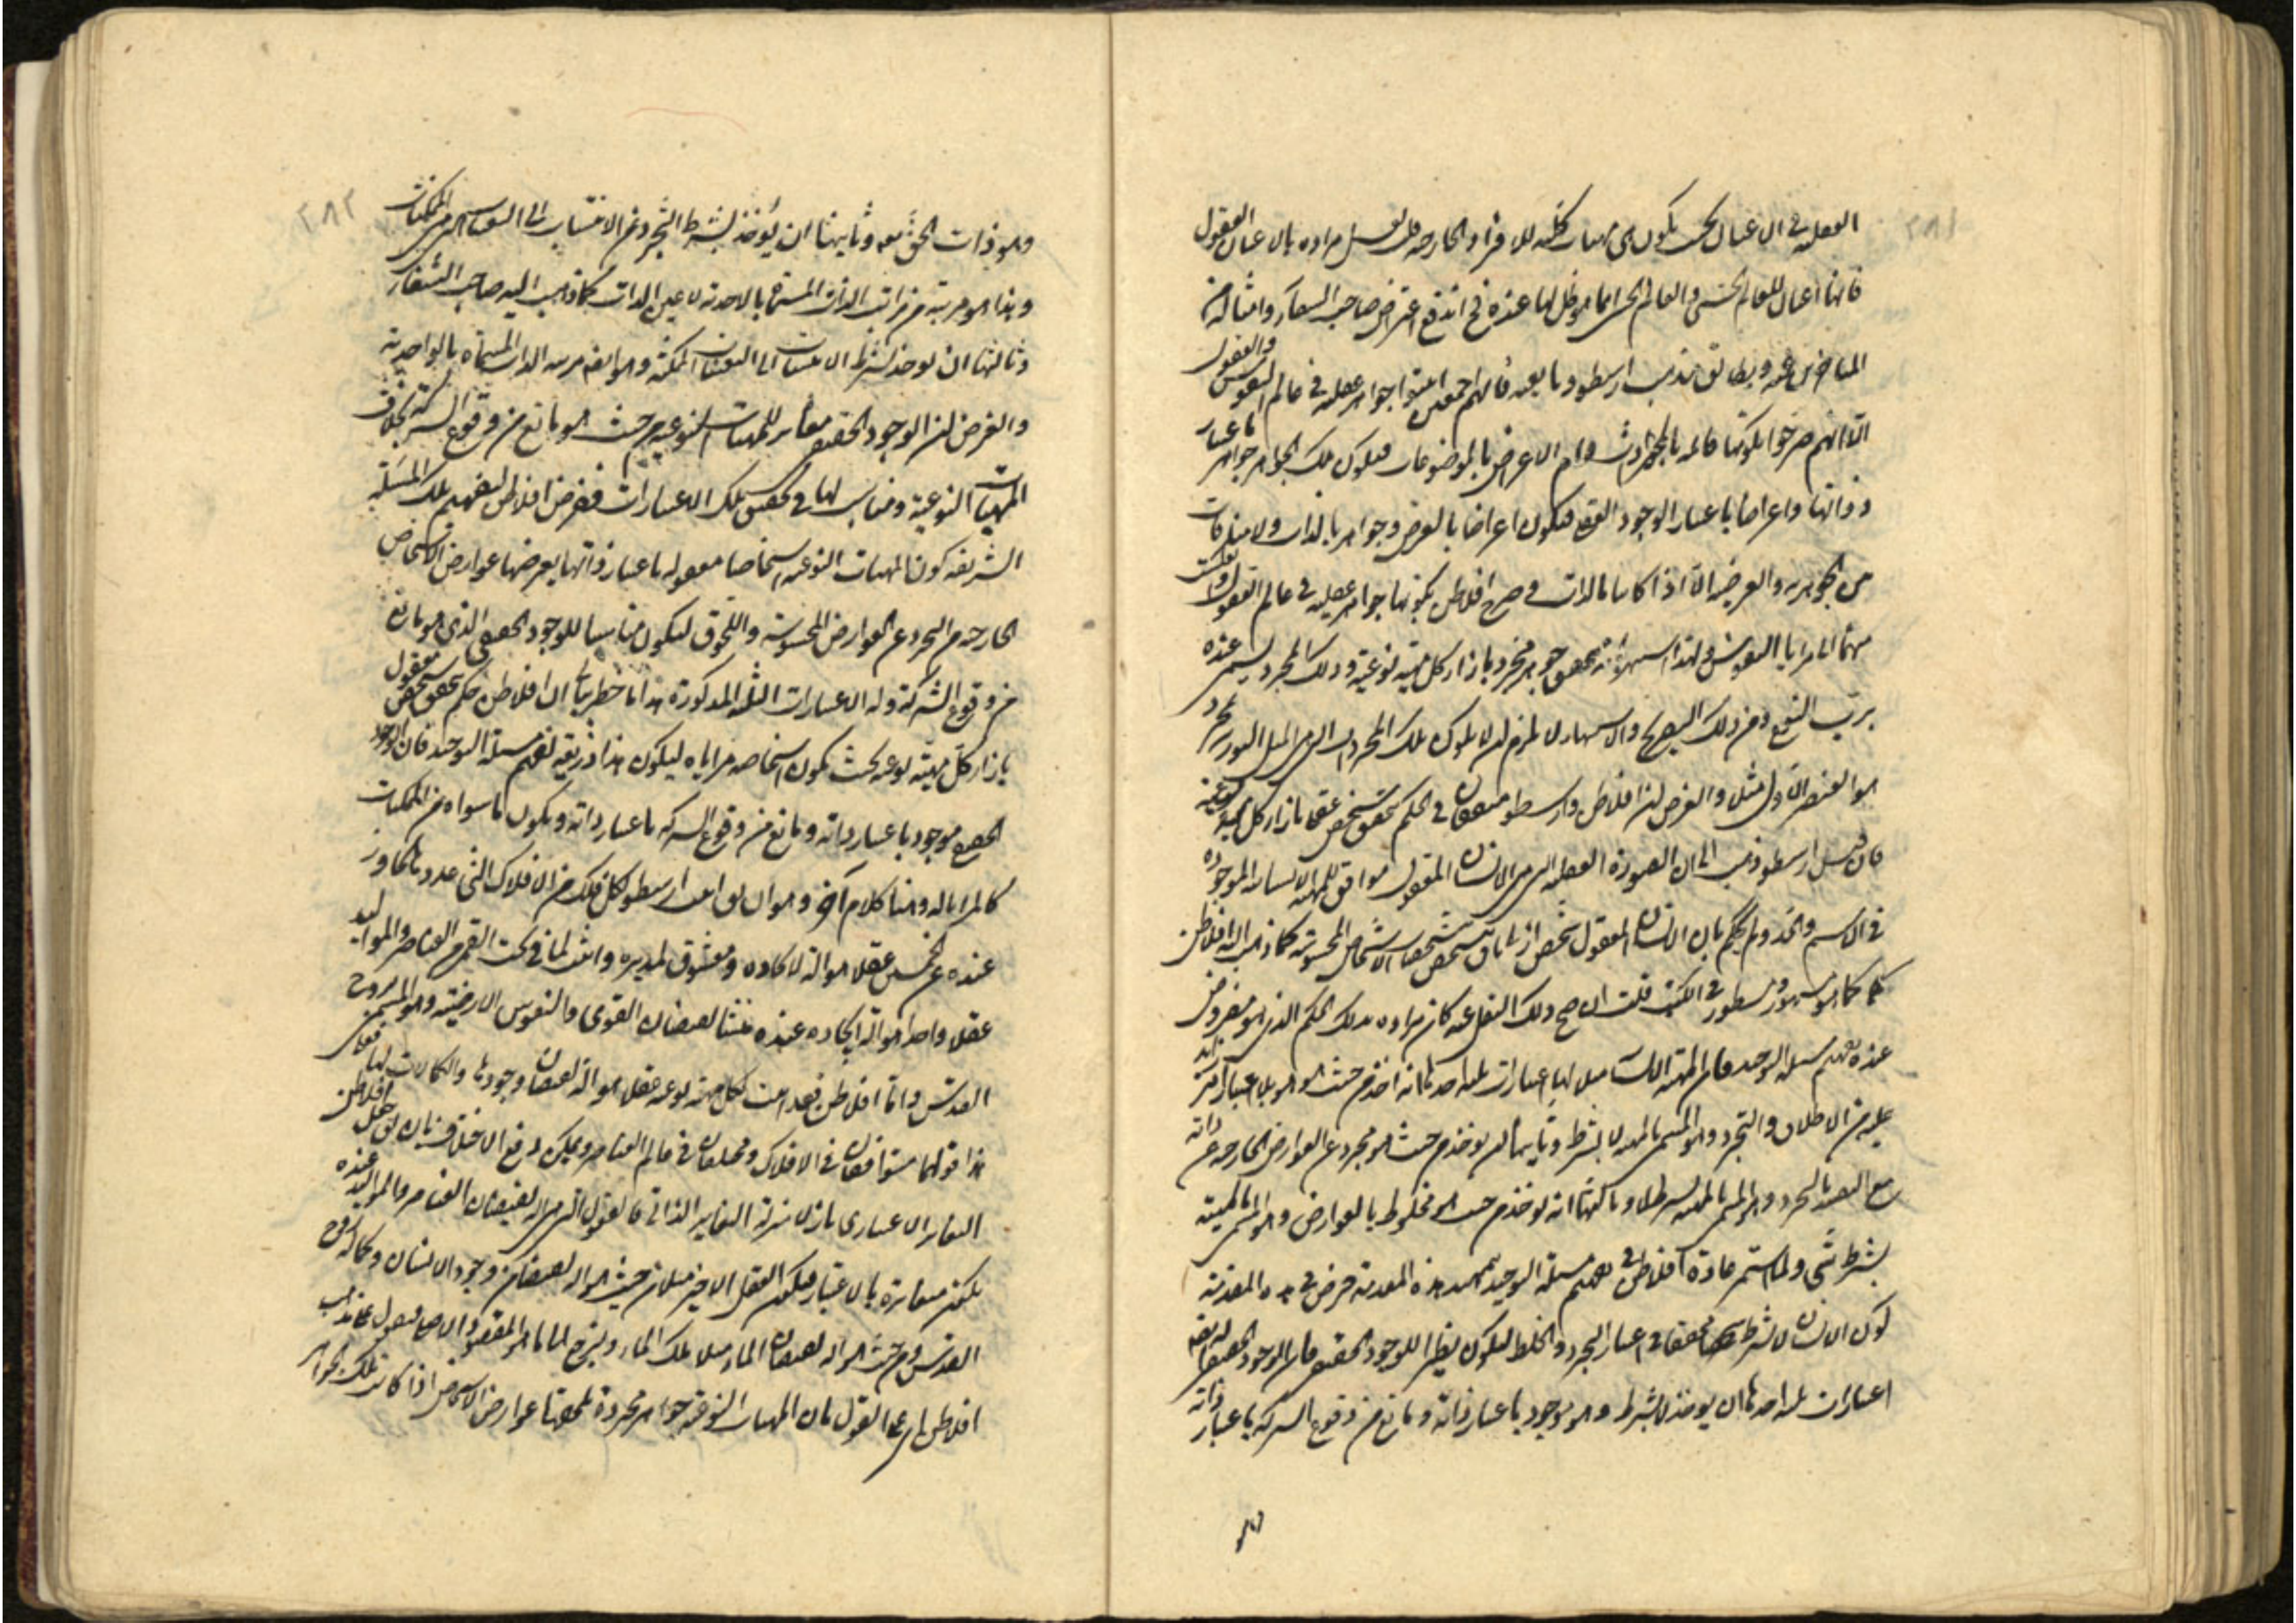 ٢٨١
العقلية في الاعيان بحيث يكون هي مهيات كلية للافراد الخارجة قلت لعل مراده بالاعيان العقول
فانها اعيان للعالم الحسي والعالم الحسي انما هو ظل لها عنده فح اندفع اعتراض صاحب الشفاء وامثاله من
المتاخرين عنه ويطابق مذهب ارسطو وتابعيه فانهم اجمعين اثبتوا جواهر عقلية في عالم النفوس والعقول
الا انهم صرحوا بكونها قائمة بالمجردات قيام الاعراض بالموضوعات فيكون تلك الجواهر جواهر باعتبار
ذواتها واعراضا باعتبار الوجود فيكون اعراضا بالعرض وجواهر بالذات ولا منافات
بين الجوهرية والعرضية الا اذا كانا بالذات وصرح افلاطن بكونها جواهر عقلية في عالم العقول
مرايا النفوس ولهذا اشتهر انه بتحقق جوهر مجرد بازاء كل مهية نوعية وذلك المجرد يسمى عنده
برب النوع ومن ذلك التصريح والاشتهار لا يلزم ان لا يكون تلك المجردات التي هي المثل النورية
هو العنصر الاول مثل والغرض ان افلاطن وارسطو متفقان في الحكم بتحقق شخص عقلي بازاء كل مهية نوعية
فان قيل ارسطو ذهب الى ان الصورة العقلية التي هي الانسان المعقول موافق للمهية الانسانية الموجودة
في الاسم والحد ولم يحكم بان الانسان المعقول شخص ازلي باق بتشخص الاشخاص المحسوسة كما ذهب اليه افلاطن
كما هو مشهور ومسطور في الكتب قلت ان صح ذلك النقل عنه كان مراده بذلك الحكم الذي هو مفروض
عنده تفهيم مسئلة التوحيد فان المهية الانسانية لها اعتبارات ثلثة احدها انه اخذ من حيث هو هو بلا اعتبار امر زايد
عليه من الاطلاق والتجرد وهو المسمى بالمهية لا بشرط وثانيها ان يوخذ من حيث هو مجرد عن العوارض الخارجة عن ذاته
مع التقييد بالتجرد وهو المسمى بالمهية بشرط لا وثالثها انه يوخذ من حيث هو مخلوط بالعوارض وهو المسمى بالمهية
بشرط شيء ولما استمر عادة افلاطن في تفهيم مسئلة التوحيد بتمهيد هذه المقدمة فرض في هذه المقدمة
كون الانسان لا بشرط متحققا في اعتبار التجرد والخلط ليكون نظيرا للوجود الحقيقي فان الوجود الحقيقي له ايضا
اعتبارات ثلثة احدها ان يوخذ لا بشرط وهو موجود باعتبار ذاته ومانع من وقوع الشركة باعتبار ذاته
وهو
٢٨٢
وهو ذات الحق تعه وثانيها ان يؤخذ بشرط التجرد عن الانتساب الى التعينات التي هي الممكنات
وهذا هو مرتبة من مراتب الذات المسماة بالاحدية لا عين الذات كما ذهب اليه صاحب الشفاء
وثالثها ان يوخذ بشرط الانتساب الى التعينات الممكنة وهو ايضا مرتبة الذات المسماة بالواحدية
والغرض ان الوجود الحقيقي مغاير للمهيات النوعية من حيث هو مانع من وقوع الشركة بخلاف
المهيات النوعية ومناسب لها في تحقق تلك الاعتبارات ففرض افلاطن لتفهيم تلك المسئلة
الشريفة كون المهيات النوعية اشخاصا معقولة باعتبار ذواتها يعرضها عوارض الاشخاص
الخارجة من التجرد عن العوارض المحسوسة واللحوق ليكون مناسبا للوجود الحقيقي الذي هو مانع
من وقوع الشركة وله الاعتبارات الثلثة المذكورة هذا ما خطر ببالي ان افلاطن حكم بتحقق شخص معقول
بازاء كل مهية نوعية بحيث يكون اشخاصه مراياه ليكون هذا ذريعة لفهم مسئلة التوحيد فان الوجود
الحقيقي موجود باعتبار ذاته ومانع من وقوع الشركة باعتبار ذاته ويكون ما سواه من الممكنات
كالمرايا له وهنا كلام آخر وهو ان يق اثبت ارسطو لكل فلك من الافلاك التي عددها تجاوز
عنده عن خمسين عقلا هو آلة لايجاده ومعشوق لمديره واثبت لما في تحت القمر من العناصر والمواليد
عقلا واحدا هو آلة ايجاده عنده منشأ لفيضان القوى والنفوس الارضية وهو المسمى بروح
القدس واما افلاطن فقد اثبت لكل مهية نوعية عقلا هو آلة لفيضان وجودها والكمالات لها فعلى
هذا قولهما متوافقان في الافلاك ومختلفان في عالم العناصر ويمكن رفع الاختلاف بان يق جعل افلاطن
التغاير الاعتباري نازلا منزلة التغاير الذاتي فالعقول التي هي آلة لفيضان العناصر والمواليد عنده
يكون متغايرة بالاعتبار فيكون العقل الاخير مثلا من حيث هو آلة لفيضان وجود الانسان وكماله روح
القدس ومن حيث هو آلة لفيضان الماء مثلا ملك الماء ولنرجع الى ما هو المقصود الاصلي فنقول على مذهب
افلاطن اي على القول بان المهيات النوعية جواهر مجردة يلحقها عوارض الاشخاص اذا كانت تلك الجواهر